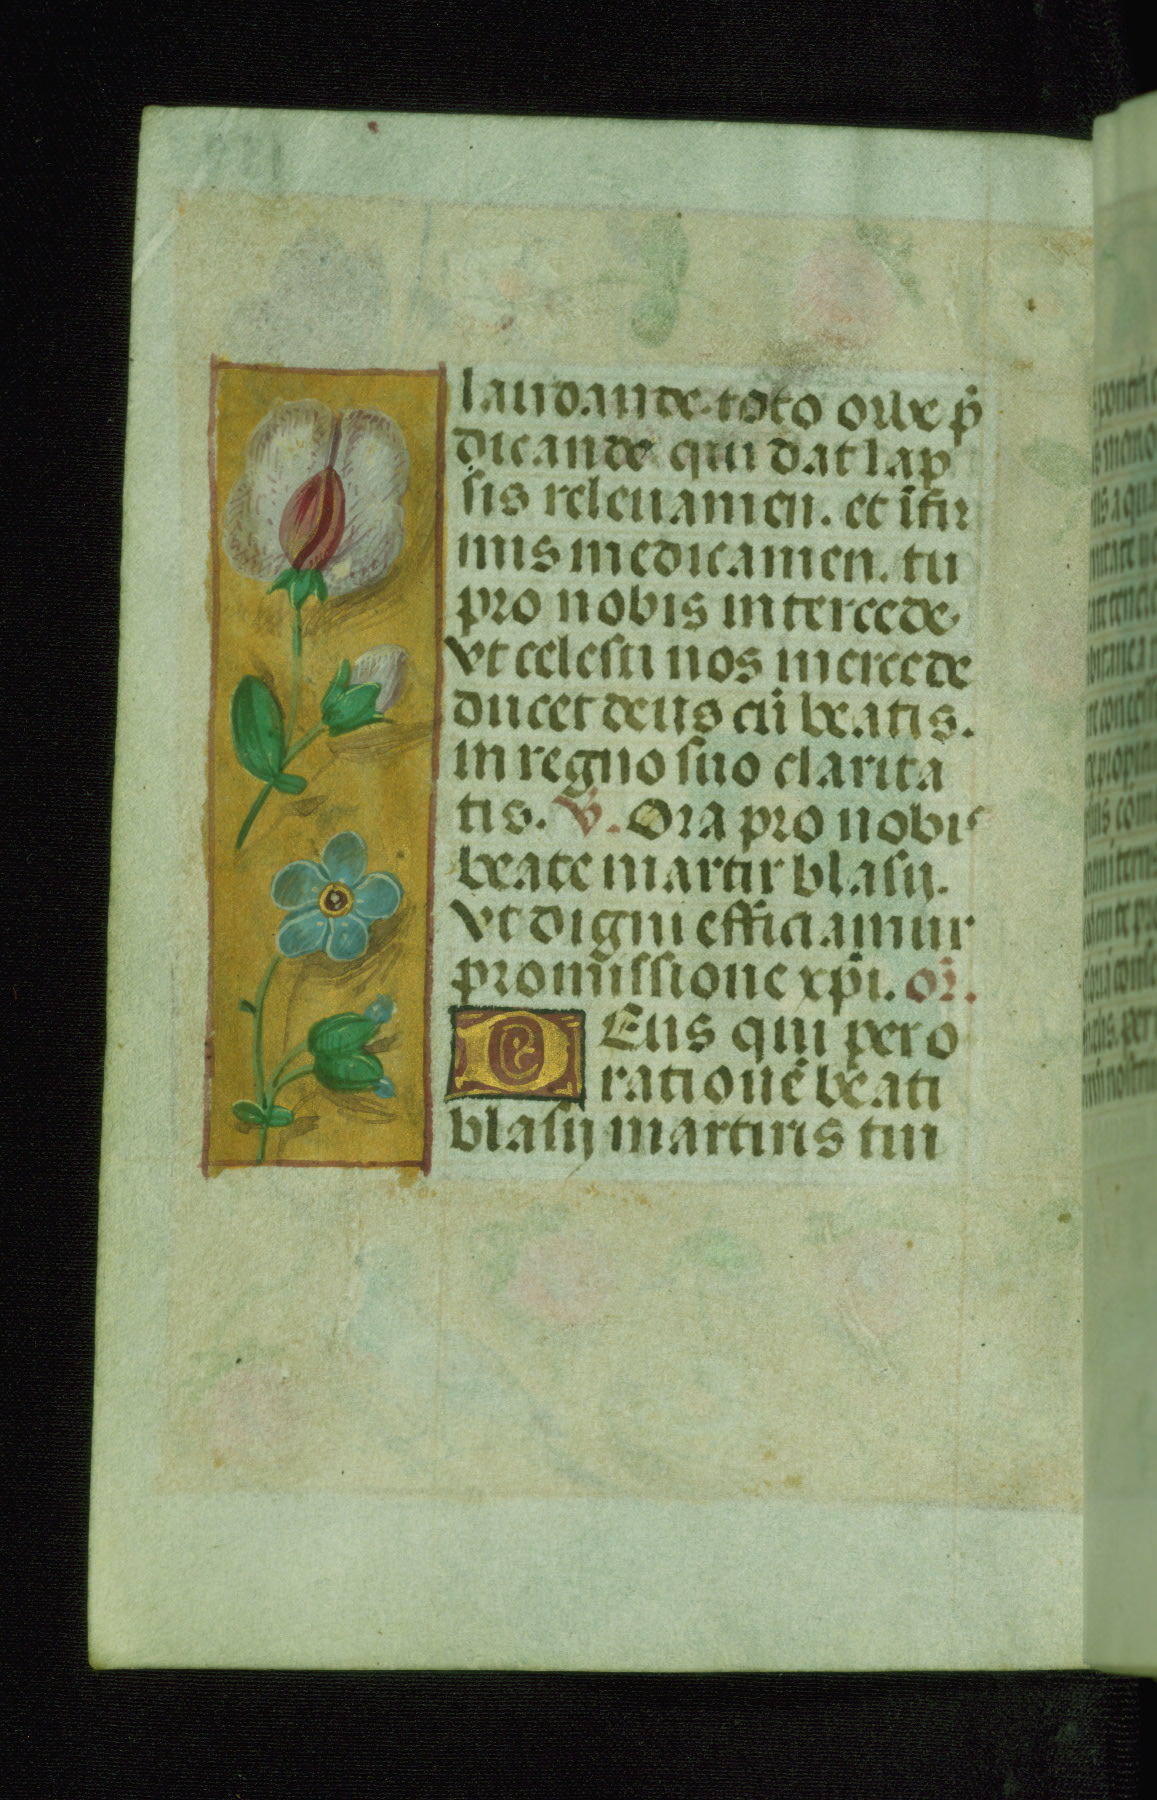 laudande. toto orbe p̄
dicande qui dat lap
sis releuamen. et īfir
mis medicamen. tu
pro nobis intercede.
vt celesti nos mercede
ducet deus cū beatis.
in regno suo clarita
tis. V̄. Ora pro nobis
beate martir blasij.
vt digni efficiamur
promissione xp̄i. or̄.
Deus qui pero
rationē beati
blasij martiris tui